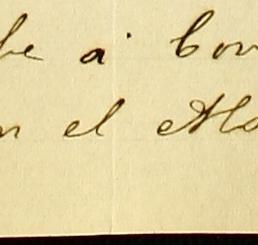 be á Con
n el Alo